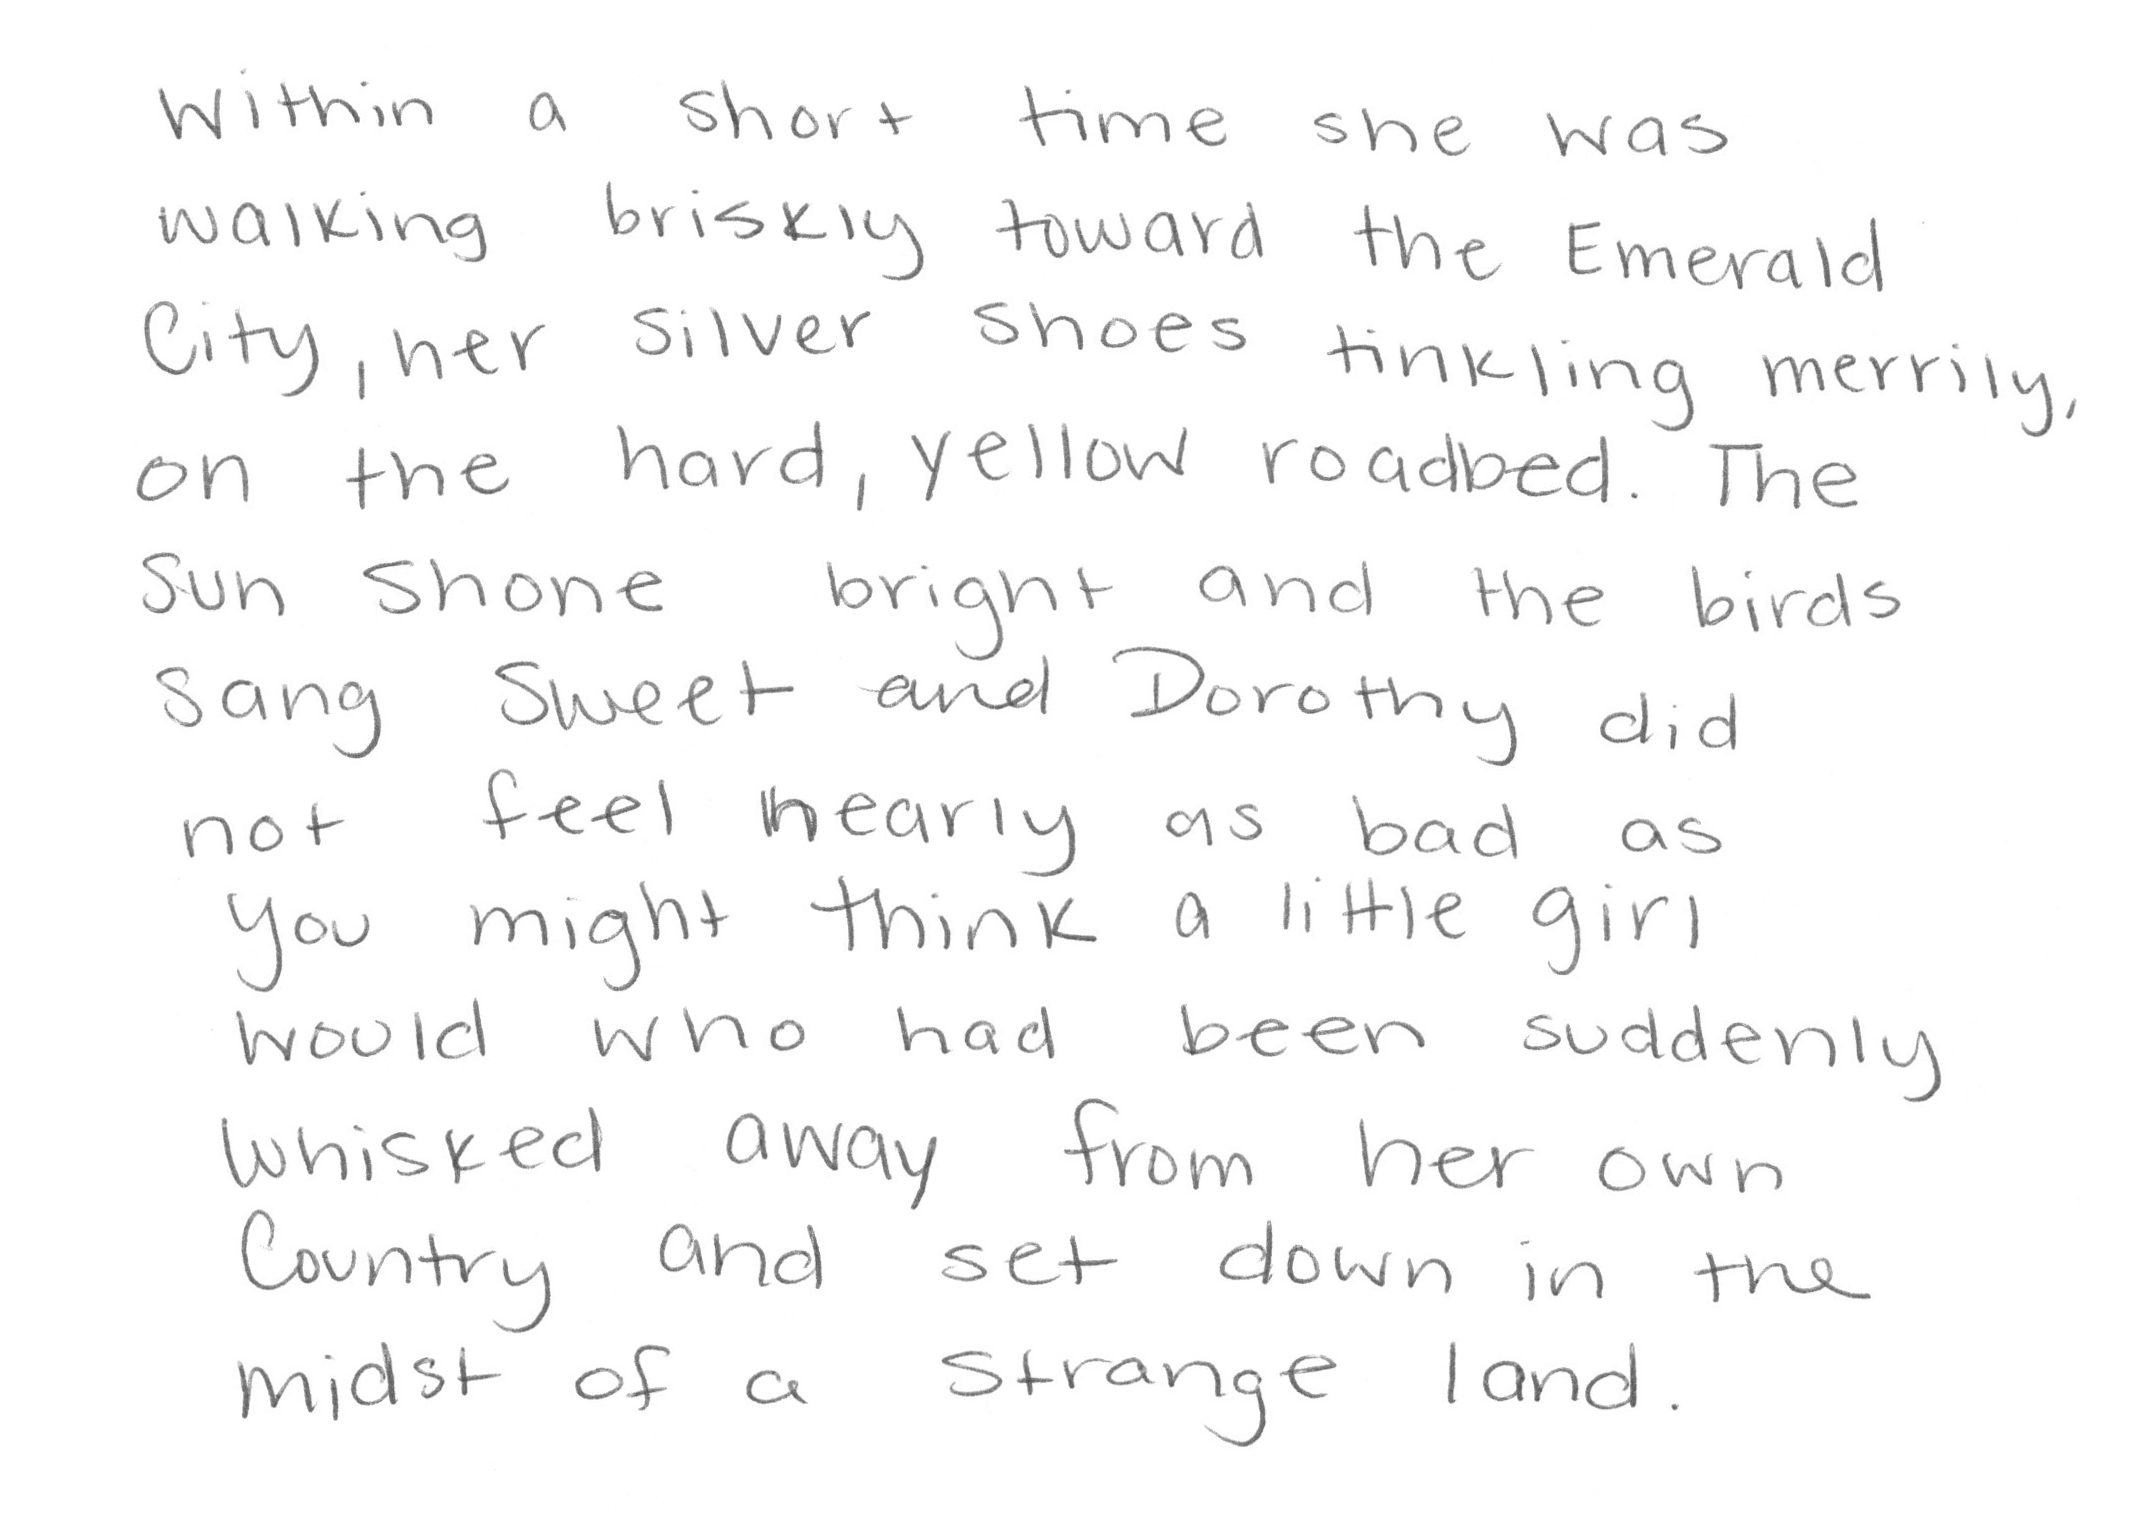 Within a short time she was
walking briskly toward the Emerald
City, her silver shoes tinkling merrily,
on the hard, yellow roadbed. The
sun shone bright and the birds
sang sweet and Dorothy did
not feel nearly as bad as
you might think a little girl
would who had been suddenly
whisked away from her own
Country and set down in the
midst of a strange land.